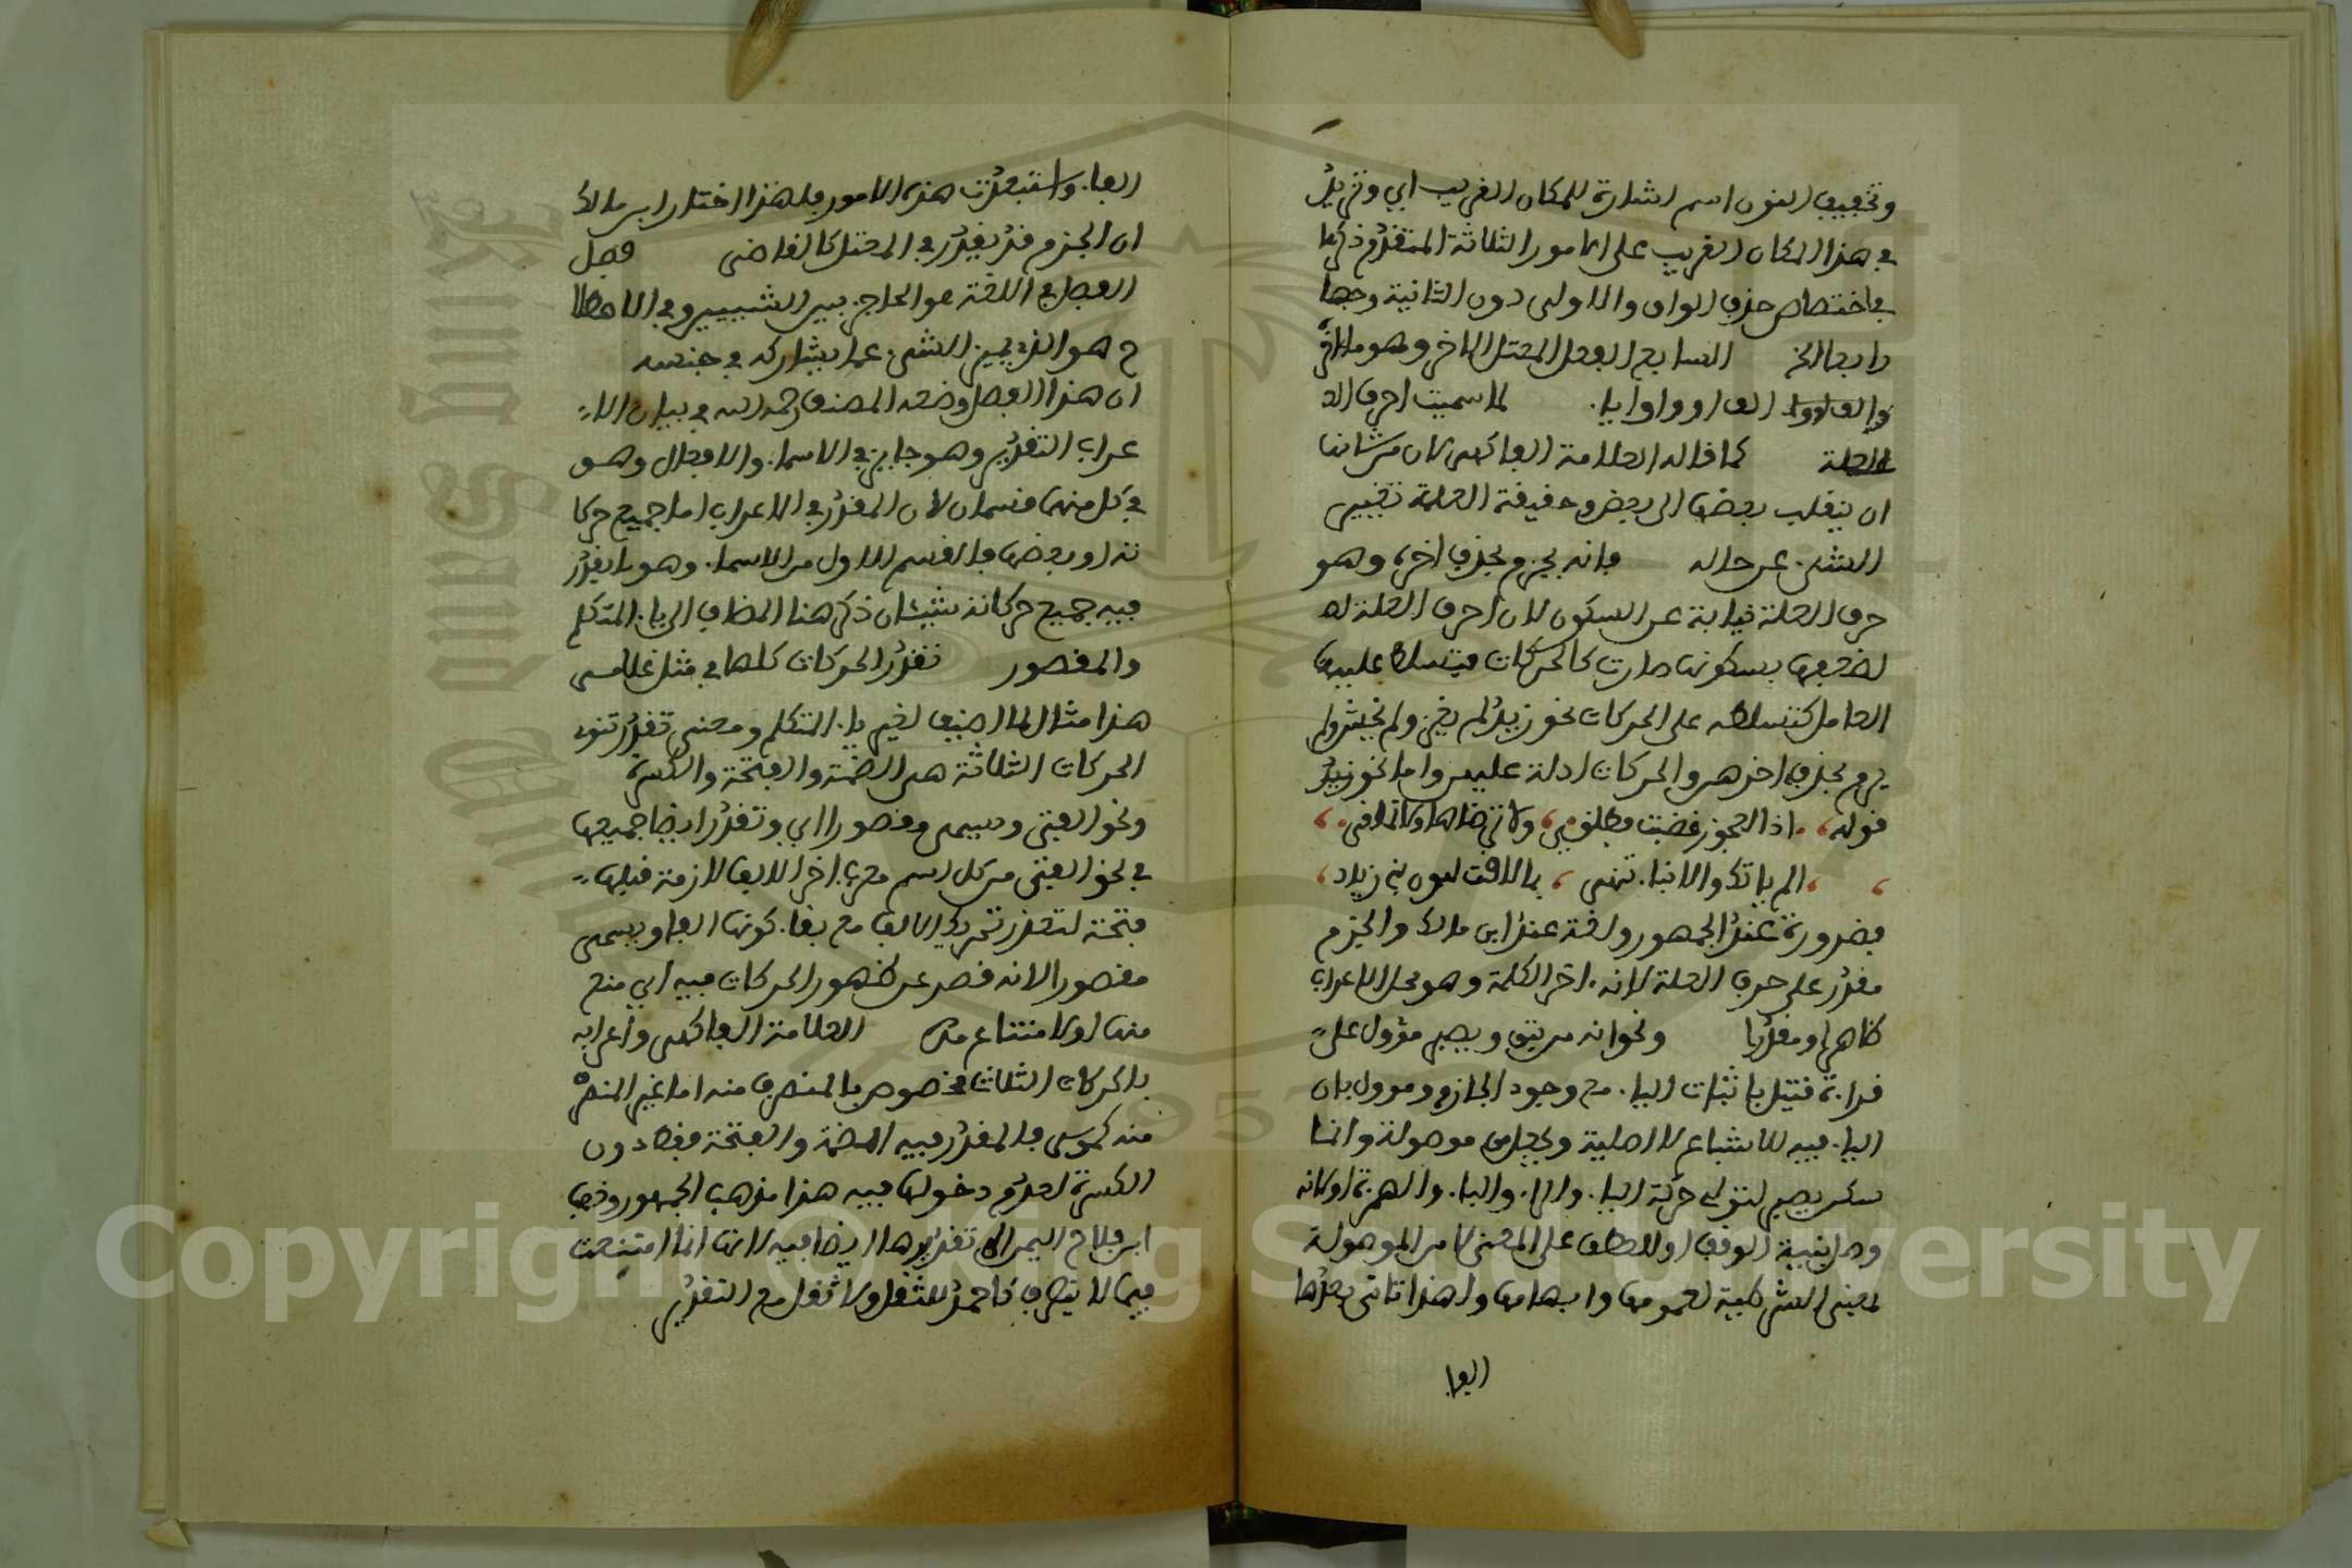 وتخفيف النون اسم اشارة للمكان القريب اي وتزيد
في هذا المكان القريب على الامور الثلاثة المتقدم ذكرها
في اختصاص حذف الواو والاولى دون الثانية وجها
رابعا الخ السابع الفعل المعتل الاخر وهو ما اخره
الف او واو او يا. لما سميت احرف ال
العلة كما قاله العلامة الفاكهي لان من شانها
ان ينقلب بعضها الى بعض وحقيقة العلة تغيير
الشيء عن حاله فانه يجزم بحذف اخره وهو
حرف العلة نيابة عن السكون لان احرف العلة
لضعفها بسكونها صارت كالحركات فتسلط عليها
العامل كتسلطه على الحركات نحو زيد لم يغز ولم يخش ولم
يرم بحذف اخرهن والحركات ادلة عليهن واما نحو
قوله اذا العجوز غضبت فطلق ولا ترضاها ولا تملق
الم ياتيك والانباء تنمى بما لاقت لبون بني زياد
فضرورة عند الجمهور ولغة عند ابن مالك والجزم
مقدر على حرف العلة لانه اخر الكلمة وهو محل الاعراب
ظاهرا او مقدرا ونحو انه من يتق ويصبر مؤول على
قراءة قنبل باثبات الياء مع وجود الجازم ومؤول بان
الياء فيه للاشباع لا اصلية وبجعل من موصولة وانما
سكن يصبر لتوالي حركة الباء والراء والفاء والهمزة او لانه
وصل بنية الوقف او للعطف على المعنى لا من الموصولة
بمعنى الشرطية لعمومها وابهامها ولهذا تاتي بعدها
الفا
الفاء واستبعدت هذه الامور فلهذا اختار ابن مالك
ان الجزم قد يقدر في المعتل كالقاضى فصل
الفصل في اللغة هو الحاجز بين الشيئين وفي الاصطلا
ح هو الذي يميز الشيء عما يشاركه في جنسه
ان هذا الفصل وضعه المصنف رحمه الله في بيان الا
عراب التقديري وهو جايز في الاسماء والافعال وهو
في كل منهما قسمان لان المقدر في الاعراب اما جميع حركا
ته او بعضها فالقسم الاول من الاسماء وهو ما يقدر
فيه جميع حركاته شيئان ذكر هنا المضاف الى ياء المتكلم
والمقصور تقدر الحركات كلها في مثل غلامي
هذا مثال لما اضيف لغير ياء المتكلم ومعنى تقدر تنوى
الحركات الثلاثة هى الضمة والفتحة والكسرة
ونحو الفتى ويسمى مقصورا اي وتقدر ايضا جميعها
في نحو الفتى من كل اسم معرب اخره الف لازمة قبلها
فتحة لتعذر تحريك الالف مع بقاء كونها الفا ويسمى
مقصورا لانه قصر عن ظهور الحركات فيه اي منع
منها او لامتناع مده العلامة الفاكهي واعرابه
بالحركات الثلاث مخصوص بالمنصرف منه اما غير المنصرف
منه كموسى فالمقدر فيه الضمة والفتحة فقط دون
الكسرة لعدم دخولها فيه هذا مذهب الجمهور وذهب
ابن فلاح اليمني الى تقديرها ايضا فيه لانها انما امتنعت
فيما لا ينصرف كاحمد للثقل ولا ثقل مع التقدير
Copyright © King Saud University